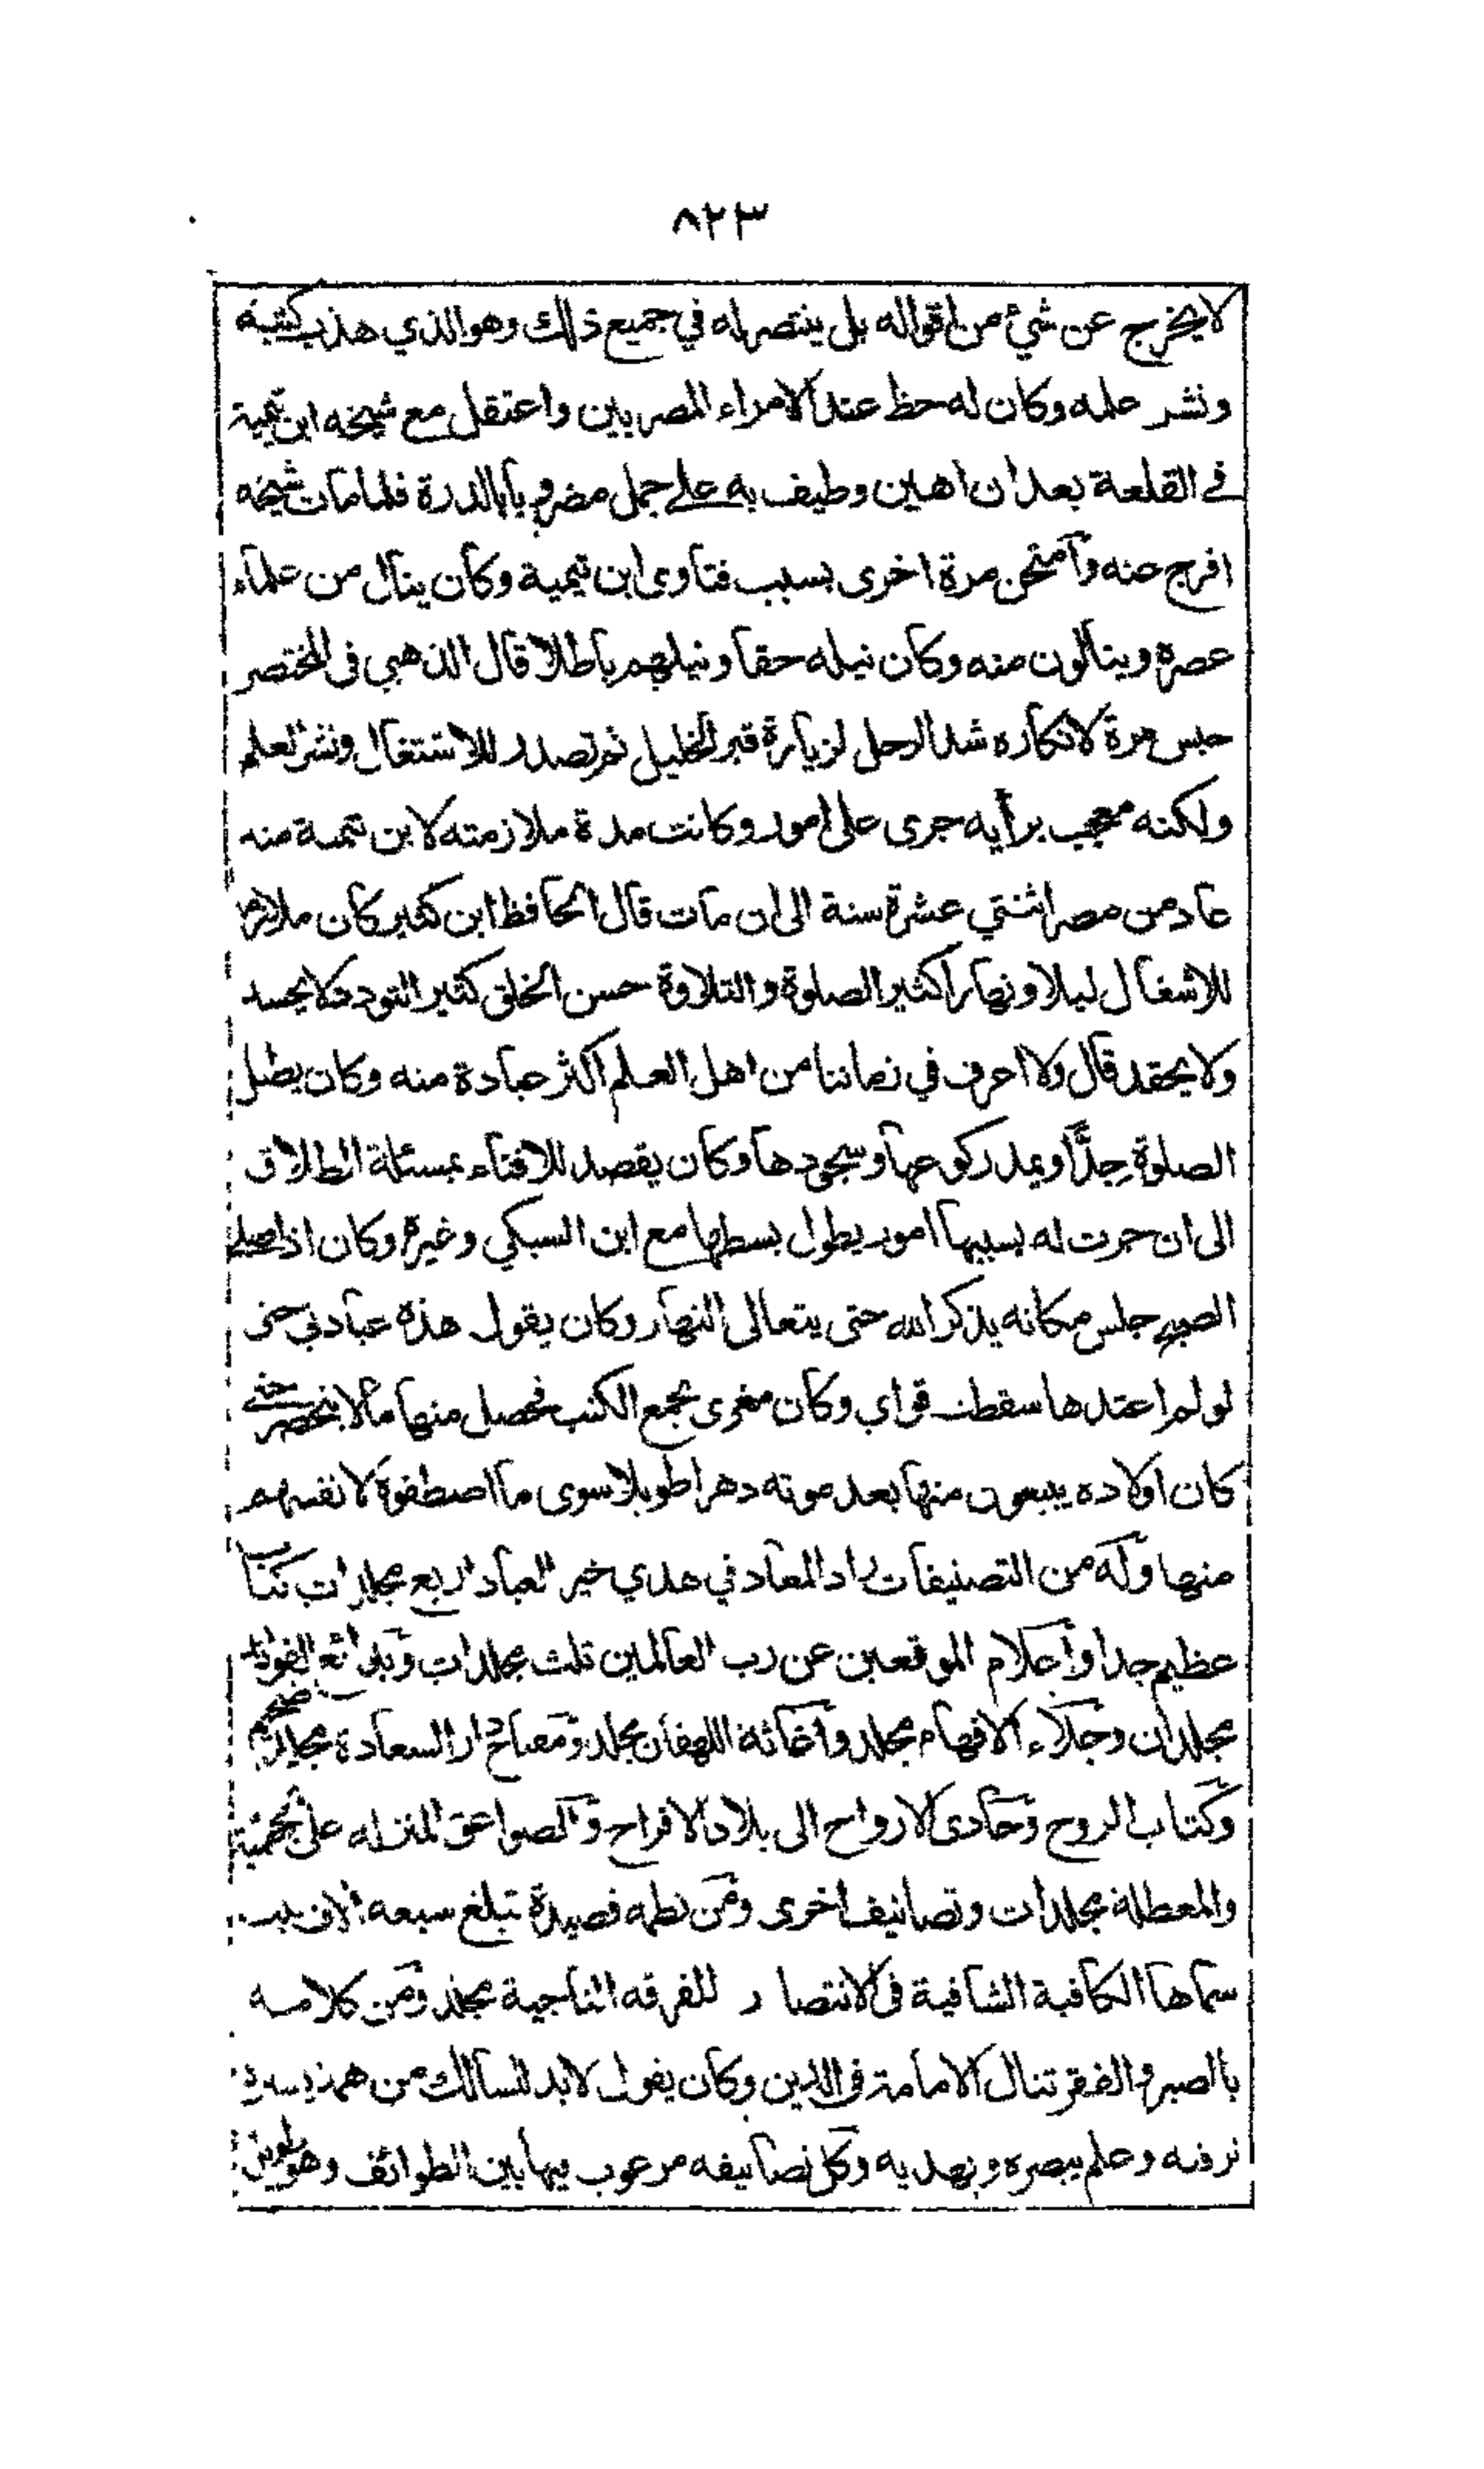 ٨٢٣
لا يخرج عن شيء من اقواله بل ينتصر له في جميع ذلك وهو الذي هذب كتبه
ونشر علمه وكان له حظ عند الامراء المصريين واعتقل مع شيخه ابن تيمية
في القلعة بعد ان اهين وطيف به على جمل مضروبا بالدرة فلما مات شيخه
افرج عنه وامتحن مرة اخرى بسبب فتاوى ابن تيمية وكان ينال من علماء
عصره وينالون منه وكان نيله حقا ونيلهم باطلا قال الذهبي فى المختصر
حبس مرة لانكاره شد الرحل لزيارة قبر الخليل ثم تصدر للاشتغال ونشر العلم
ولكنه معجب برأيه جرى على امور وكانت مدة ملازمته لابن تيمية منه
عاد من مصر اثنتي عشرة سنة الى ان مات قال الحافظ ابن كثير كان ملازما
للاشغال ليلا ونهارا كثير الصلوة والتلاوة حسن الخلق كثير التودد لا يحسد
ولا يحقد قال ولا اعرف في زماننا من اهل العلم اكثر عبادة منه وكان يطيل
الصلوة جدًّا ويمد ركوعها وسجودها وكان يقصد للافتاء بمسئلة الطلاق
الى ان جرت له بسببها امور يطول بسطها مع ابن السبكي وغيره وكان اذا صلى
الصبح جلس مكانه يذكر الله حتى يتعالى النهار وكان يقول هذه عبادتي حتى
لو لم اعتدها سقطت قواي وكان مغرى بجمع الكتب فحصل منها ما لا ينحصر حتى
كان اولاده يبيعون منها بعد موته دهرا طويلا سوى ما اصطفوه لانفسهم
منها وله من التصنيفات زاد المعاد في هدي خير العباد اربع مجلدات كتاب
عظيم جدا واعلام الموقعين عن رب العالمين ثلث مجلدات وبدائع الفوائد
مجلدان وجلاء الافهام مجلد واغاثة اللهفان مجلد ومفتاح دار السعادة مجلد ضخم
وكتاب الروح وحادى الارواح الى بلاد الافراح والصواعق المنزله على الجهمية
والمعطلة مجلدات وتصانيف اخرى ومن نظمه قصيدة تبلغ سبعه الاف بيت
سماها الكافية الشافية فى الانتصار للفرقه الناجية مجلد ومن كلامه
بالصبر والفقر تنال الامامة فى الدين وكان يقول لابد للسالك من همة
ترقيه وعلم يبصره ويهديه وكل تصانيفه مرغوب فيها بين الطوائف وهو طويل